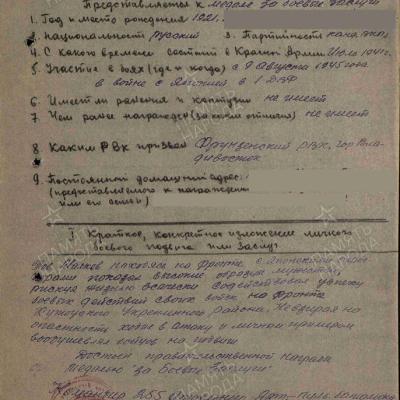 Представляется к медали За боевые заслуги
1. Год и место рождения 1921.
2. Национальность русский 3. Партийность канд. ВКП(б)
4. С какого времени состоит в Красной Армии Июль 1941 г.
5. Участие в боях (где и когда) с 9 августа 1945 года
в войне с Японией в 1 ДВФ
6. Имеет ли ранения и контузии не имеет
7. Чем ранее награжден (за какие отличия) не имеет
8 Каким РВК призван Фрунзенский РВК, гор. Вла-
дивосток
9. Постоянный домашний адрес:
(представляемого к награждению
или его семьи)
I Краткое, конкретное изложение личного
боевого подвига или заслуг
находясь на фронте с Японской
показал высокие образцы мужества,
рискуя жизнью всячески содействовал успеху
боевых действий своих войск на фронте
Укрепленного района. Невзирая на
опасность ходил в атаку и личным примером
воодушевлял бойцов на подвиги
Достоин правительственной награды
Медалью "За Боевые Заслуги"
Командир
ПАМЯТЬ
НАРОДА